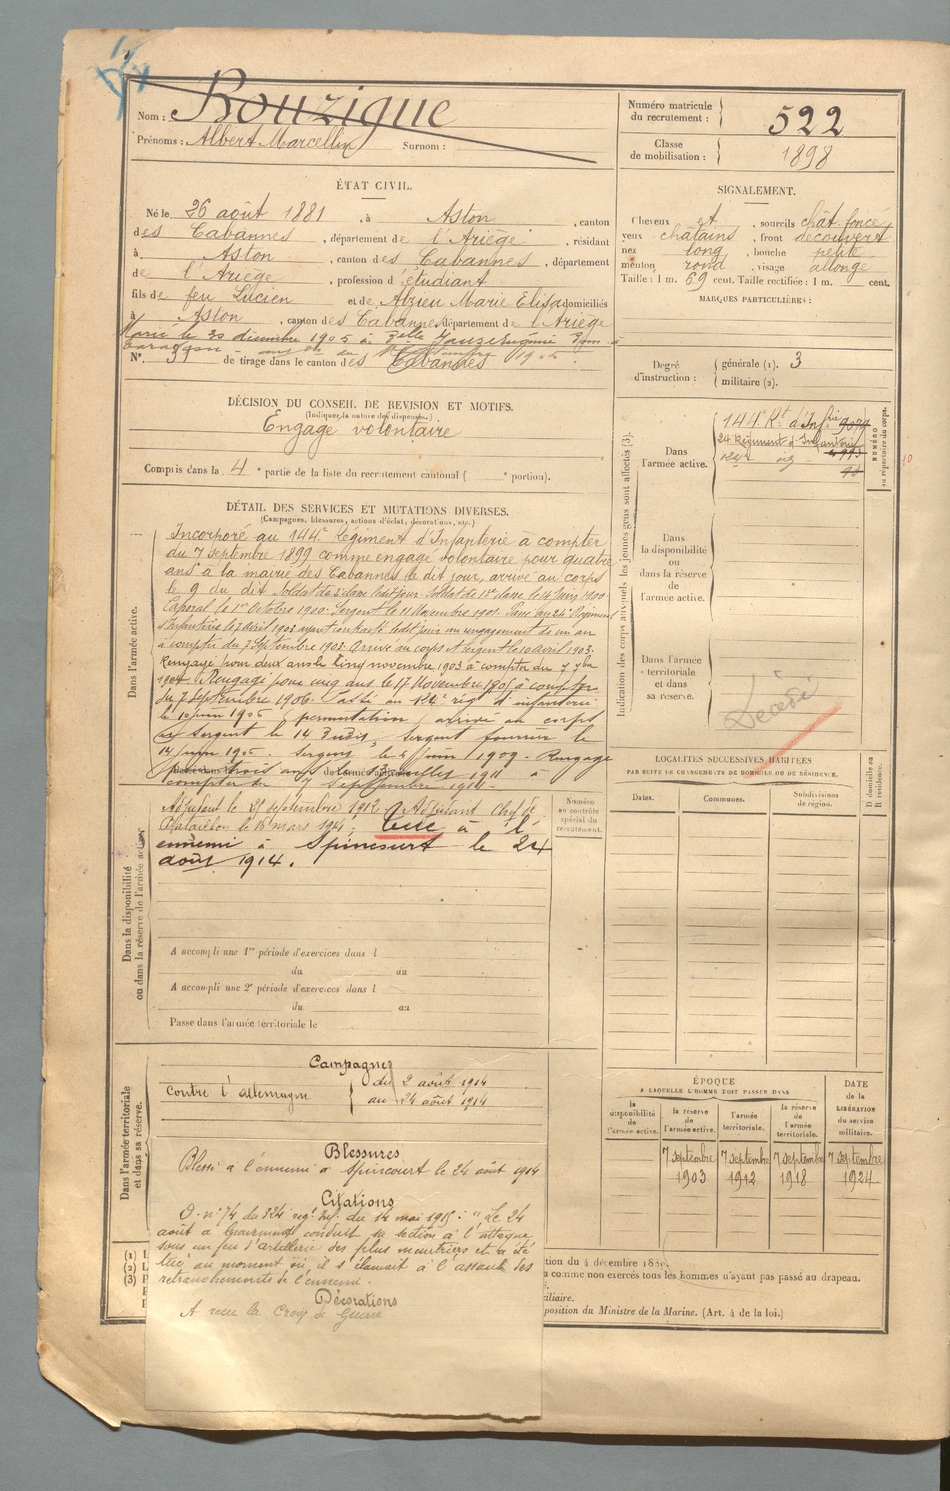 Nom : Bouzigue
Prénoms : Albert Marcellin Surnom :
Numéro matricule du recrutement : 522
Classe de mobilisation : 1898
ÉTAT CIVIL.
Né le 26 août 1881, à Aston, canton
des Cabannes, département de l'Ariège, résidant
à Aston, canton des Cabannes, département
de l'Ariège, profession d'étudiant
fils de feu Lucien et de Alzieu Marie Elisa domiciliés
à Aston, canton des Cabannes, département de l'Ariège
Marié le 30 décembre 1905 à
N°. de tirage dans le canton des Cabannes
SIGNALEMENT.
Cheveux et, sourcils chât foncé
yeux châtains, front découvert
nez long, bouche petite
menton rond, visage allongé
Taille : 1 m. 69 cent. Taille rectifiée : 1 m. cent.
MARQUES PARTICULIÈRES :
Degré d'instruction : générale (1). 3
militaire (2).
DÉCISION DU CONSEIL DE REVISION ET MOTIFS.
(Indiquer la nature des dispenses.)
Engagé volontaire
Compris dans la 4e partie de la liste du recrutement cantonal ( e portion).
DÉTAIL DES SERVICES ET MUTATIONS DIVERSES.
(Campagnes, blessures, actions d'éclat, décorations, etc.)
Dans l'armée active.
Incorporé au 144e Régiment d'Infanterie à compter
du 7 septembre 1899 comme engagé volontaire pour quatre
ans à la mairie des Cabannes le dit jour, arrivé au corps
le 9 du dit. Soldat de 2e classe ledit jour. Soldat de 1re classe le 14 1900
Caporal le 1er Octobre 1900. Sergent le 11 Novembre 1901. Passé au 24e Régiment
d'Infanterie le 3 avril 1903 ayant contracté ledit jour un rengagement de un an
à compter du 7 Septembre 1903. Arrivé au corps et sergent le 10 avril 1903.
Rengagé pour deux ans le cinq novembre 1903 à compter du 7 7bre
1904. Rengagé pour cinq ans le 17 Novembre 1905 à compter
du 7 septembre 1906. Passé au 124e rég. d'infanterie
le 10 juin 1905 (permutation) arrivé au corps
et sergent le 14 dudit, sergent fourrier le
14 juin 1905. Sergent le 6 juin 1909. Rengagé
pour trois ans le 3 juillet 1911 à
compter du 7 septembre 1911.
Dans la disponibilité ou dans la réserve de l'armée active
Adjudant le 21 septembre 1912. Adjudant Chef de
Bataillon le 16 mars 1914. Tué à l'
ennemi à Spincourt le 24
août 1914.
A accompli une 1re période d'exercices dans l
du au
A accompli une 2e période d'exercices dans l
du au
Passé dans l'armée territoriale le
Numéro au contrôle spécial du recrutement.
Indication des corps auxquels les jeunes gens sont affectés (3).
Dans l'armée active.
144e Rt d'Infrie 9079
24 Régiment d'Infanterie
124e
NUMÉRO au répertoire du corps.
10
Dans la disponibilité ou dans la réserve de l'armée active.
Dans l'armée territoriale et dans sa réserve.
Décédé
LOCALITÉS SUCCESSIVES HABITÉES
PAR SUITE DE CHANGEMENTS DE DOMICILE OU DE RÉSIDENCE.
Dates. Communes. Subdivisions de région. D domicile ou R résidence.
ÉPOQUE
A LAQUELLE L'HOMME DOIT PASSER DANS
la disponibilité de l'armée active. la réserve de l'armée active. l'armée territoriale. la réserve de l'armée territoriale.
DATE de la LIBÉRATION du service militaire.
7 septembre 1903 7 septembre 1912 7 septembre 1918 7 septembre 1924
Dans l'armée territoriale et dans sa réserve.
Campagnes
Contre l'allemagne du 2 août 1914
au 24 août 1914
Blessures
Blessé à l'ennemi à Spincourt le 24 août 1914
Citations
O. n° 74 du 324 rég. Inf. du 14 mai 1915 : "Le 24
août à conduit sa section à l'attaque
sous un feu d'artillerie des plus meurtriers et a été
tué au moment où il s'élançait à l'assaut des
retranchements de l'ennemi.
Décorations
A reçu la Croix de Guerre
(1)
(2)
(3)
tion du 4 décembre 1889.
a comme non exercés tous les hommes n'ayant pas passé au drapeau.
xiliaire.
position du Ministre de la Marine. (Art. 4 de la loi.)